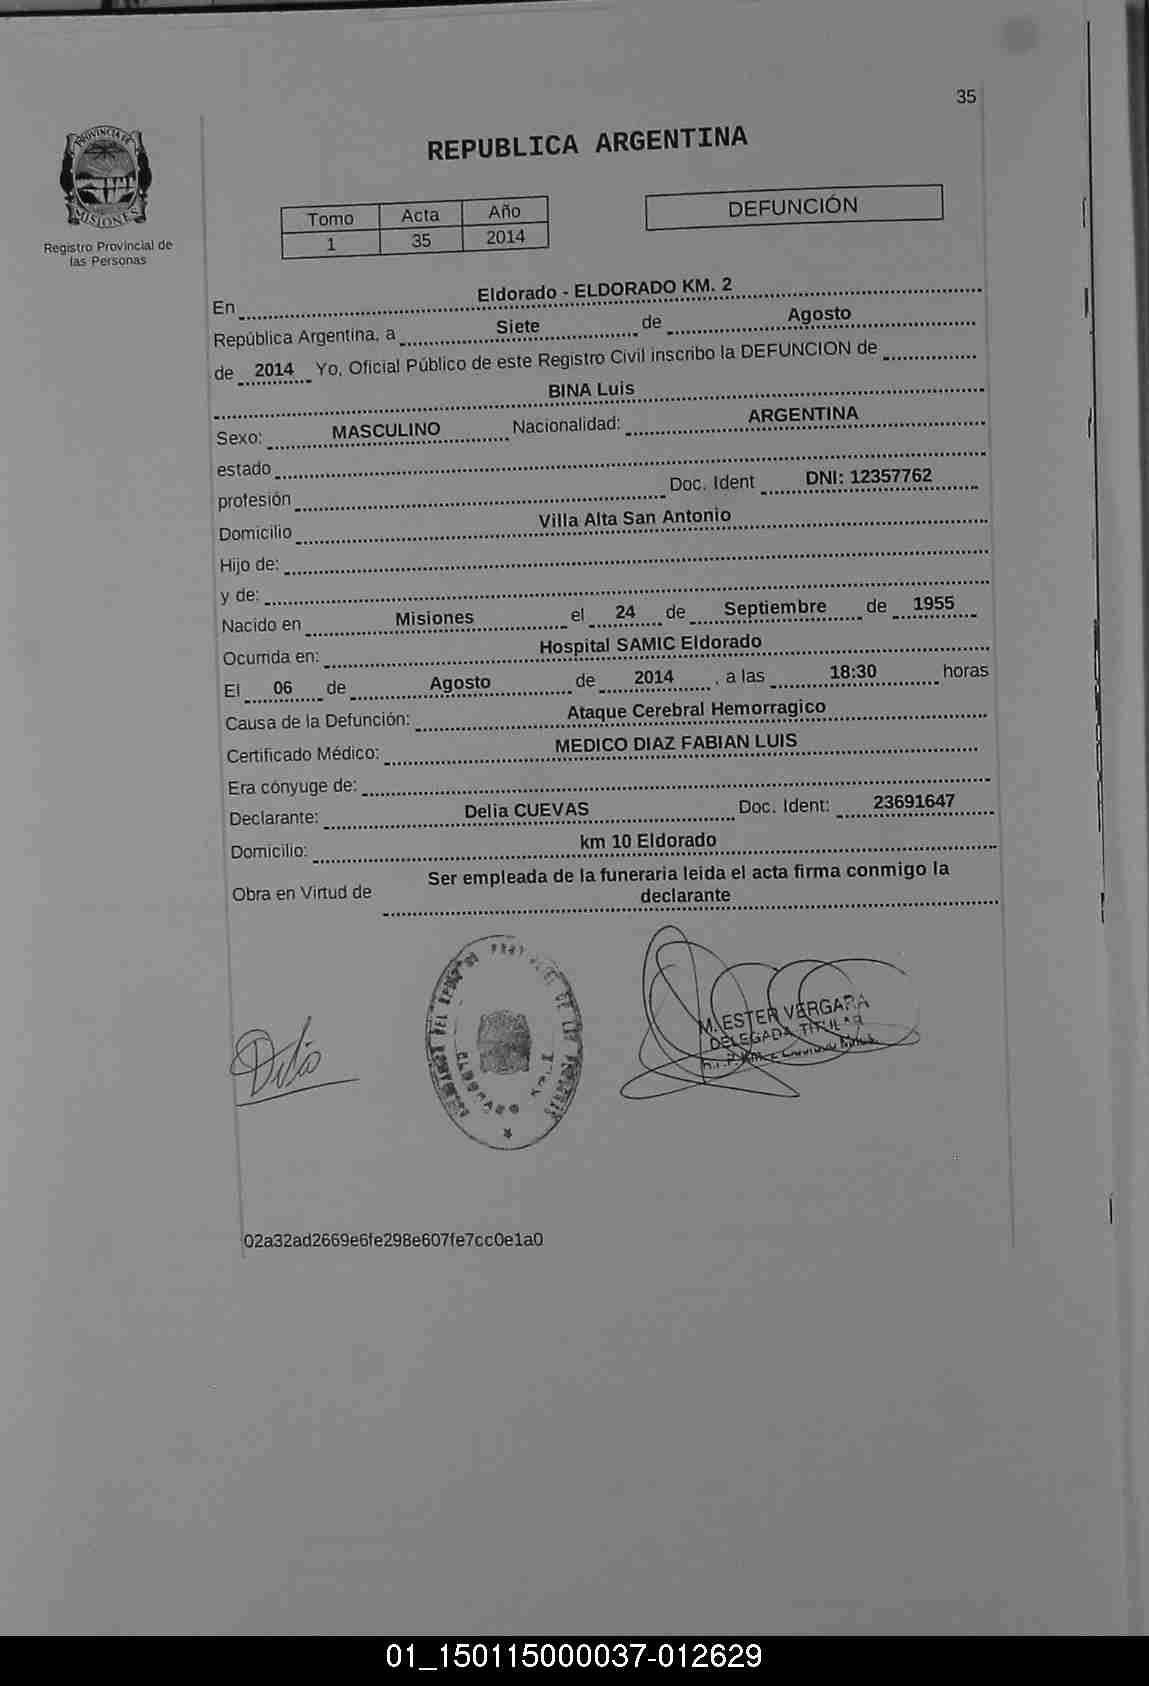 35
PROVINCIA DE
MISIONES
Registro Provincial de
las Personas
REPUBLICA ARGENTINA
Tomo Acta Año
1 35 2014
DEFUNCIÓN
En Eldorado - ELDORADO KM. 2
República Argentina, a Siete de Agosto
de 2014 Yo, Oficial Público de este Registro Civil inscribo la DEFUNCION de
BINA Luis
Sexo: MASCULINO Nacionalidad: ARGENTINA
estado
profesión Doc. Ident DNI: 12357762
Domicilio Villa Alta San Antonio
Hijo de:
y de:
Nacido en Misiones el 24 de Septiembre de 1955
Ocurrida en: Hospital SAMIC Eldorado
El 06 de Agosto de 2014 , a las 18:30 horas
Causa de la Defunción: Ataque Cerebral Hemorragico
Certificado Médico: MEDICO DIAZ FABIAN LUIS
Era cónyuge de:
Declarante: Delia CUEVAS Doc. Ident: 23691647
Domicilio: km 10 Eldorado
Obra en Virtud de Ser empleada de la funeraria leida el acta firma conmigo la
declarante
Delia
ELDORADO
M. ESTER VERGARA
DELEGADA TITULAR
02a32ad2669e6fe298e607fe7cc0e1a0
01_150115000037-012629